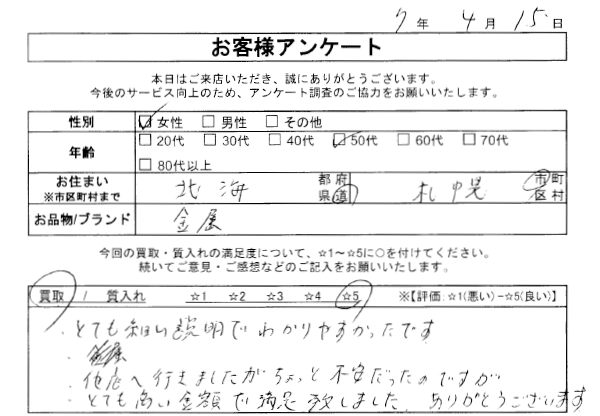 7年 4月 15日
お客様アンケート
本日はご来店いただき、誠にありがとうございます。
今後のサービス向上のため、アンケート調査のご協力をお願いいたします。
性別 ☑女性 □男性 □その他
年齢 □20代 □30代 □40代 ☑50代 □60代 □70代
□80代以上
お住まい ※市区町村まで 北海 都府県道 札幌 市町区村
お品物/ブランド 金属
今回の買取・質入れの満足度について、☆1～☆5に○を付けてください。
続いてご意見・ご感想などのご記入をお願いいたします。
買取 / 質入れ ☆1 ☆2 ☆3 ☆4 ☆5 ※【評価:☆1(悪い)−☆5(良い)】
・とても細い説明でわかりやすかったです
・
・他店へ行きましたがちょっと不安だったのですが
・とても高い金額で満足致しました。ありがとうございます